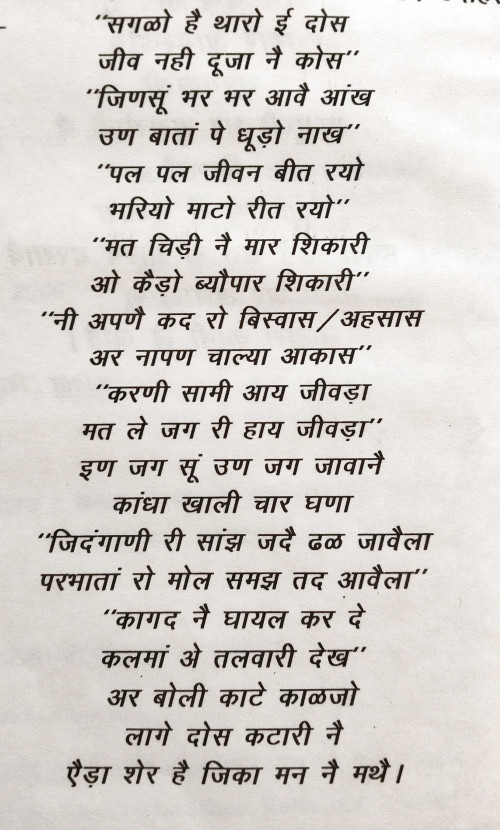 "सगळो है थारो ई दोस
जीव नही दूजा नै कोस"
"जिणसूं भर भर आवै आंख
उण बातां पे धूड़ो नाख"
"पल पल जीवन बीत रयो
भरियो माटो रीत रयो"
"मत चिड़ी नै मार शिकारी
ओ कैड़ो ब्यौपार शिकारी"
"नी अपणै कद रो बिस्वास/अहसास
अर नापण चाल्या आकास"
"करणी सामी आय जीवड़ा
मत ले जग री हाय जीवड़ा"
इण जग सूं उण जग जावानै
कांधा खाली चार घणा
"जिदंगाणी री सांझ जदै ढळ जावैला
परभातां रो मोल समझ तद आवैला"
"कागद नै घायल कर दे
कलमां अे तलवारी देख"
अर बोली काटे काळजो
लागे दोस कटारी नै
एैड़ा शेर है जिका मन नै मथै।